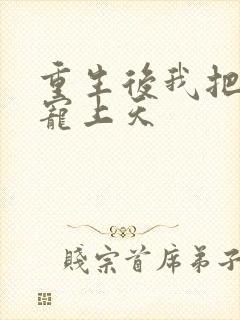 重生後我把
寵上天
賤宗首席弟子